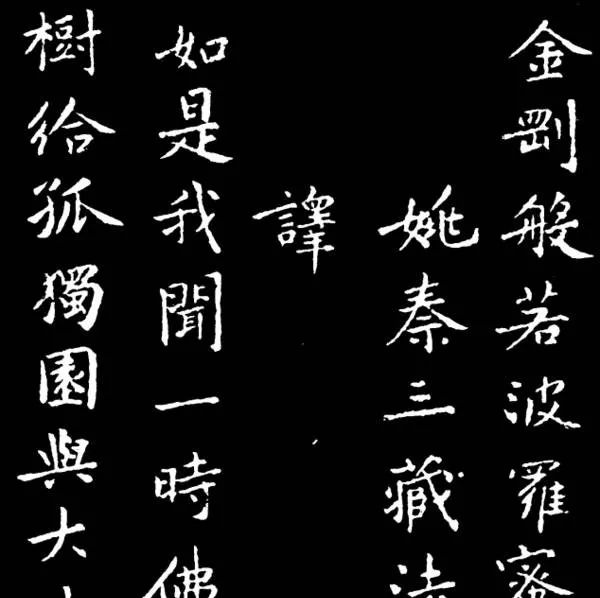 金剛般若波羅蜜
姚秦三藏法
譯
如是我聞一時佛
樹給孤獨園與大